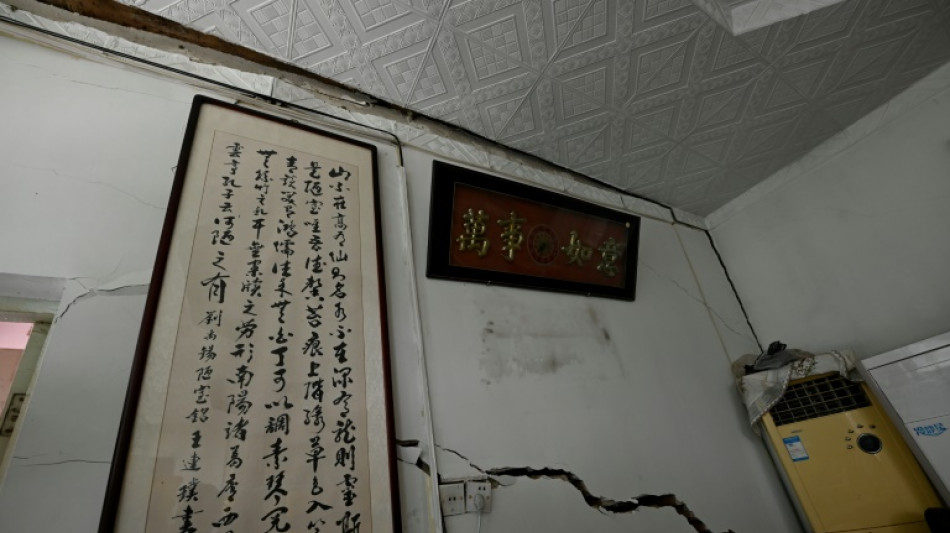 山不在高有仙則名水不在深有龍則靈斯
是陋室唯吾德馨苔痕上階綠草色入
青談笑有鴻儒往來無白丁可以調素琴閱
無絲竹之亂耳無案牘之勞形南陽諸葛廬西
雲亭孔子云何陋之有 劉禹錫陋室銘 王建璞書
萬事如意